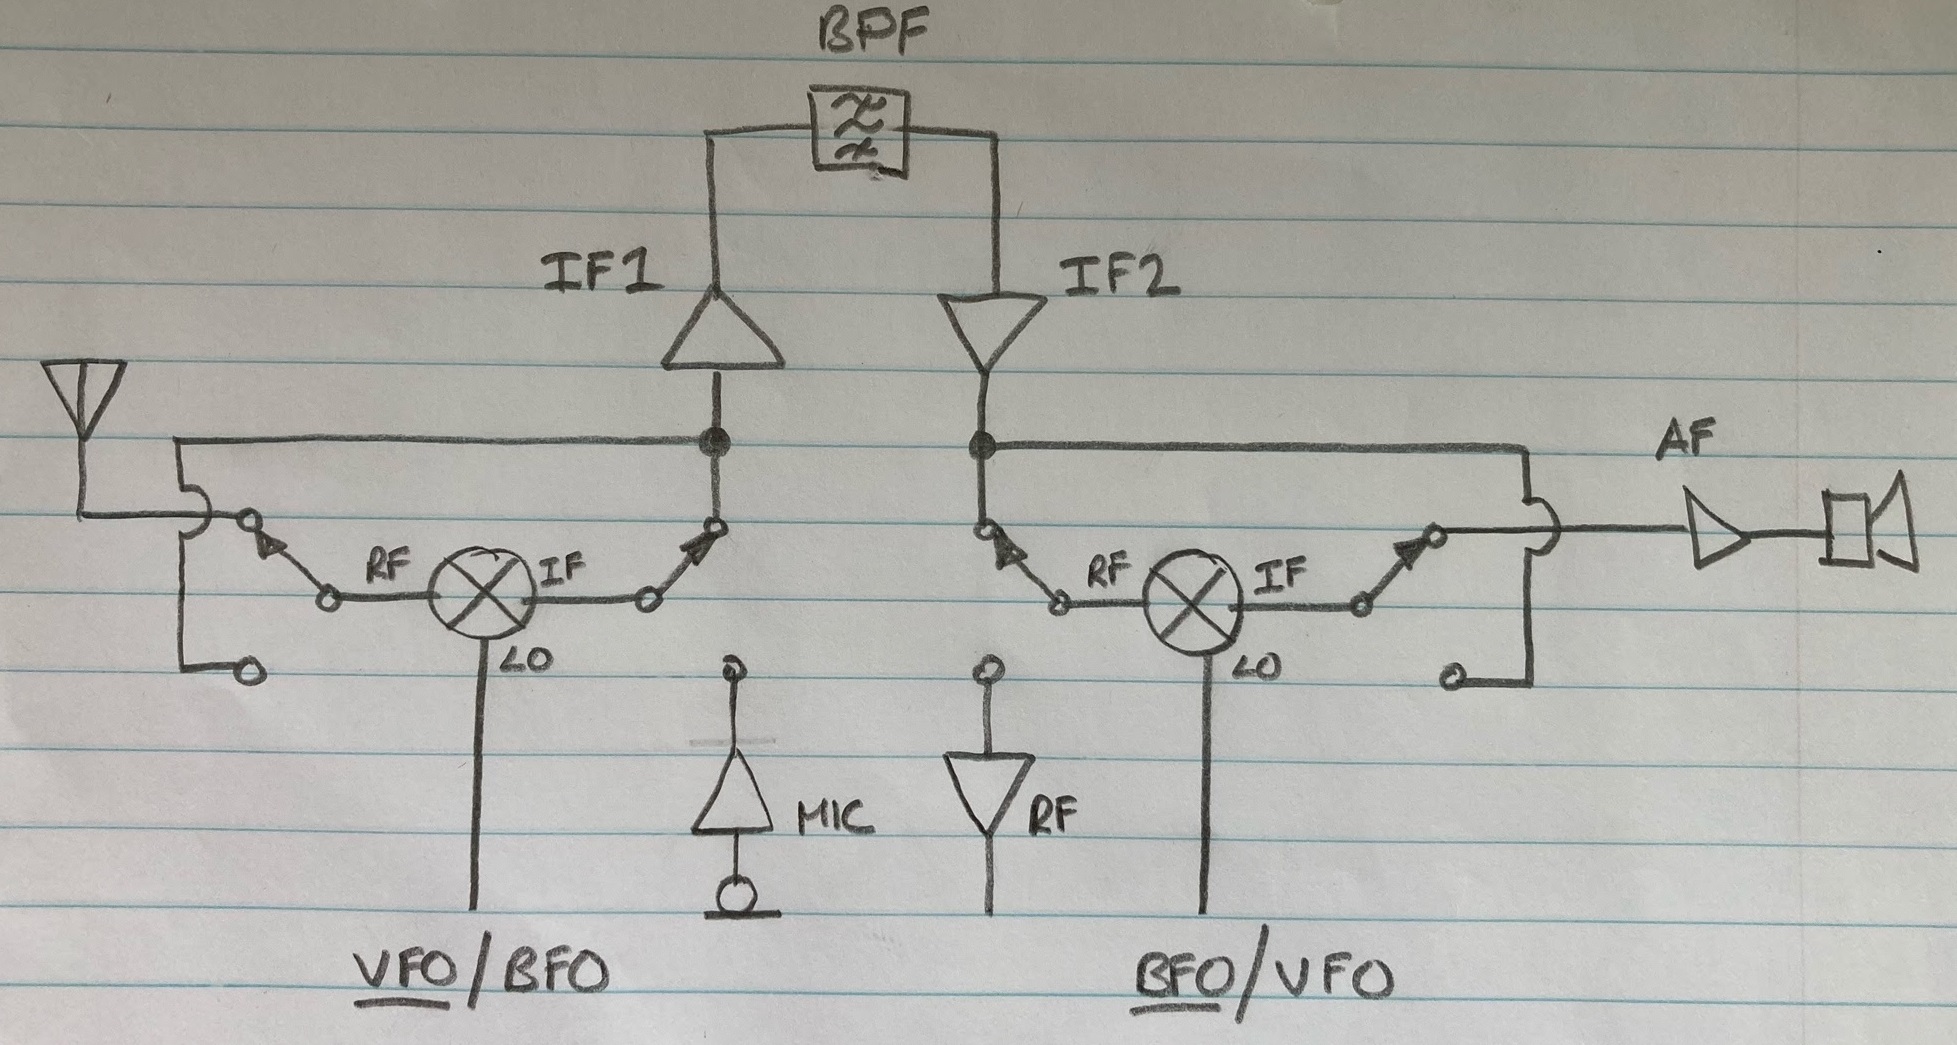 BPF
IF1
IF2
AF
RF
IF
RF
IF
LO
LO
MIC
RF
VFO/BFO
BFO/VFO